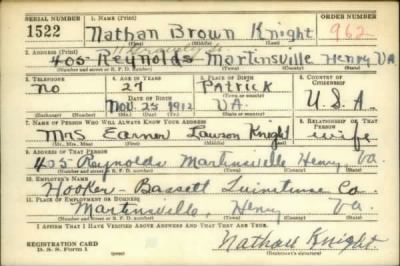 SERIAL NUMBER 1. NAME (Print) ORDER NUMBER
1522 Nathan Brown Knight 962
(First) (Middle) (Last)
2. ADDRESS (Print)
405 Reynolds Martinsville Henry VA
(Number and street or R. F. D. number) (Town) (County) (State)
3. TELEPHONE 4. AGE IN YEARS 5. PLACE OF BIRTH 6. COUNTRY OF CITIZENSHIP
no 27 Patrick
DATE OF BIRTH (Town or county)
Nov. 25 1912 VA. U.S.A.
(Mo.) (Day) (Yr.) (State or country)
7. NAME OF PERSON WHO WILL ALWAYS KNOW YOUR ADDRESS 8. RELATIONSHIP OF THAT PERSON
Mrs Earner Lawson Knight wife
(Mr., Mrs., Miss) (First) (Middle) (Last)
9. ADDRESS OF THAT PERSON
405 Reynolds Martinsville Henry Va.
(Number and street or R. F. D. number) (Town) (County) (State)
10. EMPLOYER'S NAME
Hooker - Bassett Co
11. PLACE OF EMPLOYMENT OR BUSINESS
Martinsville, Henry Va.
(Number and street or R. F. D. number) (Town) (County) (State)
I AFFIRM THAT I HAVE VERIFIED ABOVE ANSWERS AND THAT THEY ARE TRUE.
REGISTRATION CARD
D. S. S. Form 1 Nathan Knight
(Registrant's signature)